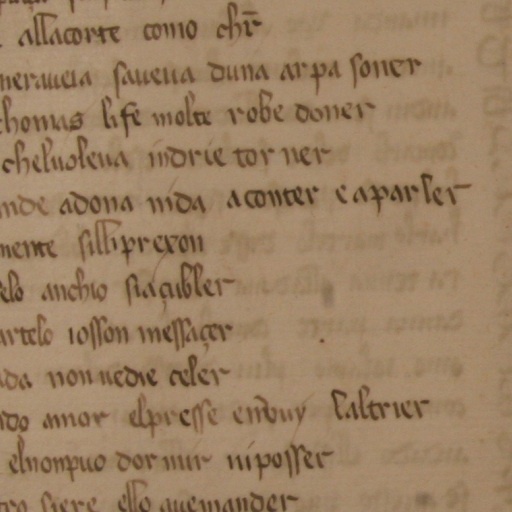 allacorte como chr̄
meraueia saueua duna arpa soner
thomas li fe molte robe doner
cheluoleua indrie torner
adona nida aconter e aparler
mente silli prexon
elo anchio sia çubler
artelo iosson messaçer
da non uedie celer
do amor elpresse laltrier
elnonpuo dormir ni posser
siere ello quemander